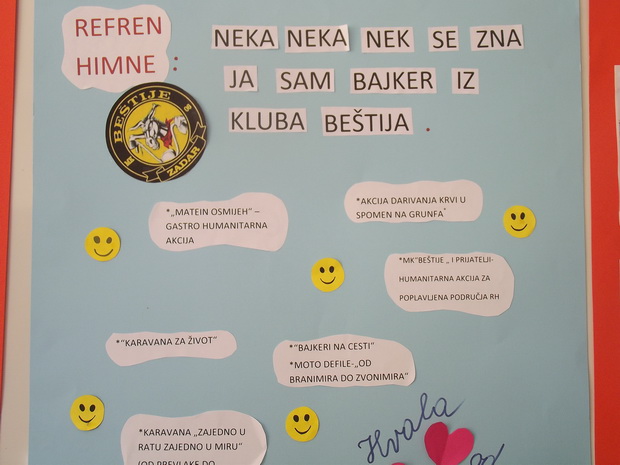 REFREN
HIMNE :
NEKA NEKA NEK SE ZNA
JA SAM BAJKER IZ
KLUBA BEŠTIJA .
BEŠTIJE
ZADAR
*„MATEIN OSMIJEH" –
GASTRO HUMANITARNA
AKCIJA
*AKCIJA DARIVANJA KRVI U
SPOMEN NA GRUNFA
*MK"BEŠTIJE „ I PRIJATELJI-
HUMANITARNA AKCIJA ZA
POPLAVLJENA PODRUČJA RH
*"KARAVANA ZA ŽIVOT"
*"BAJKERI NA CESTI"
*MOTO DEFILE-„OD
BRANIMIRA DO ZVONIMIRA"
*KARAVANA „ZAJEDNO U
RATU ZAJEDNO U MIRU"
(OD PREVLAKE DO
Hvala